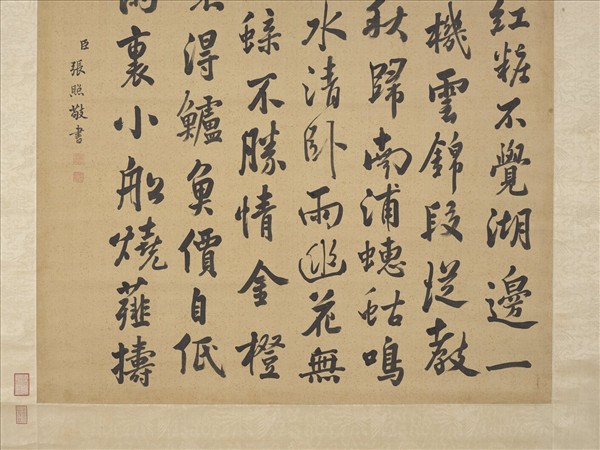 紅粧不覺湖邊一
機雲錦段從教
秋歸南浦蟪蛄鳴
水清卧雨幽花無
蝶不勝情金橙
得鱸魚價自低
雨裏小船燒薤擣
臣張照敬書